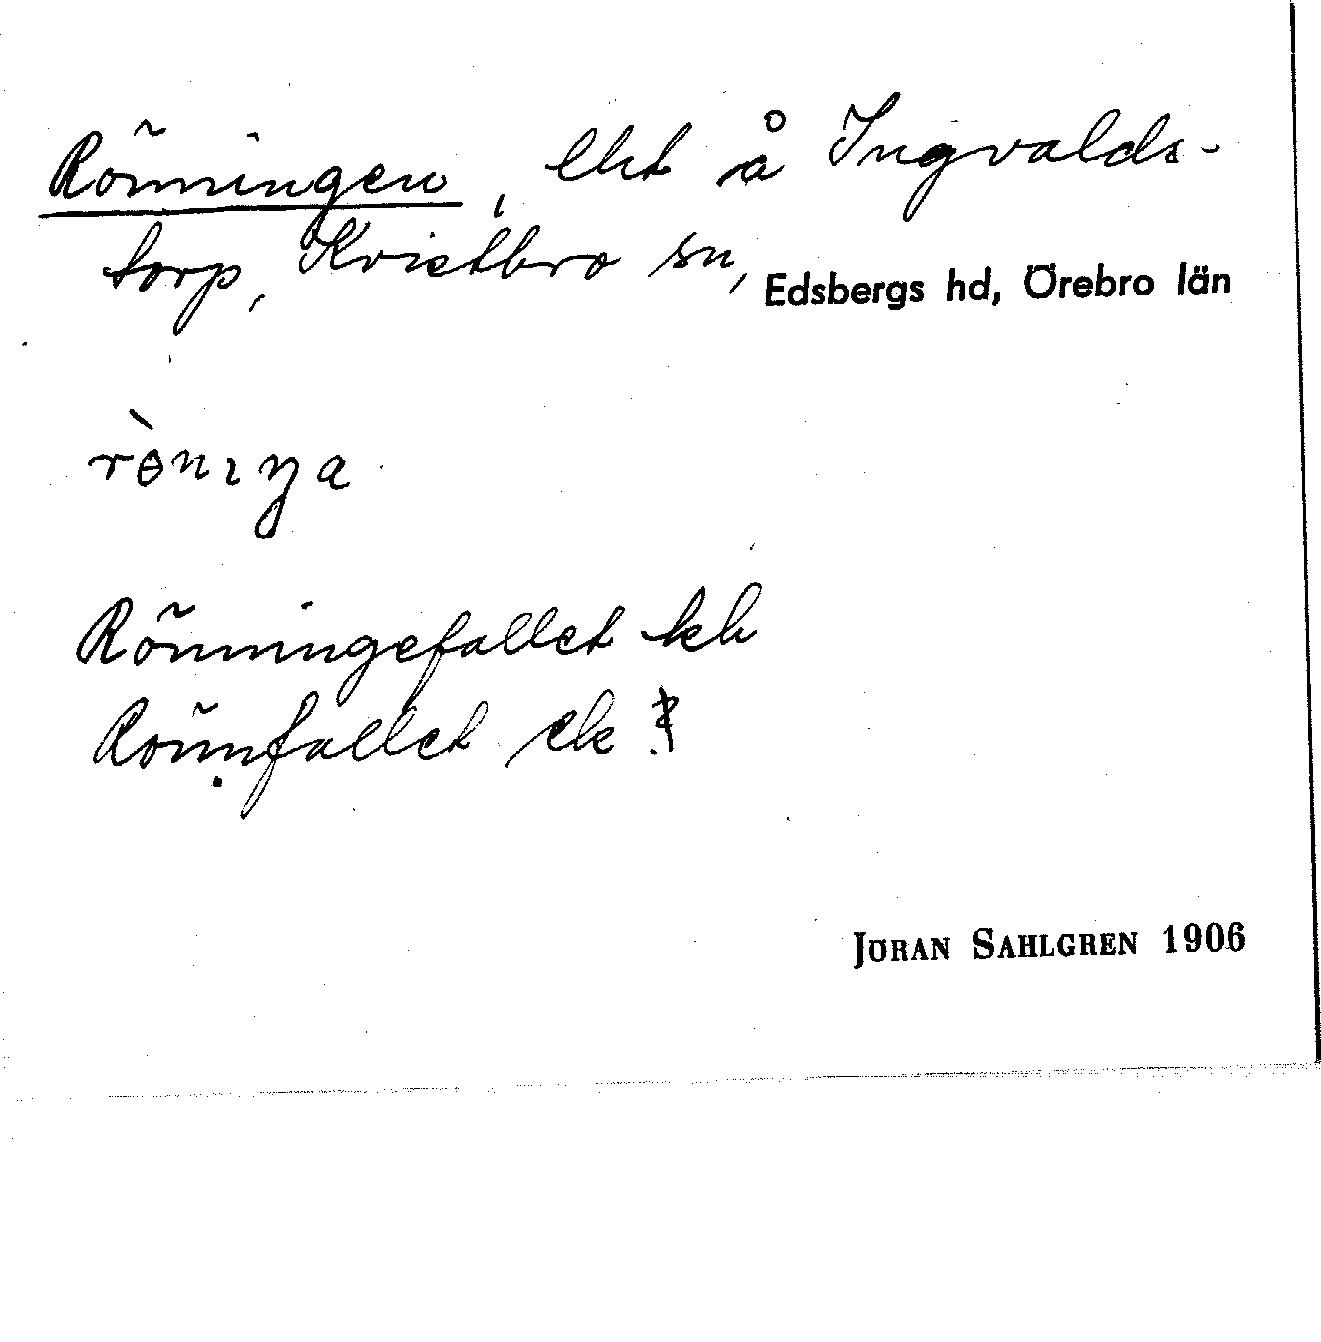 Rönningen, lht å Ingvalds-
torp, Kvistbro sn, Edsbergs hd, Örebro län
rɵ̀nıŋa
Rönningefallet kb
Rönnfallet ek
JÖRAN SAHLGREN 1906